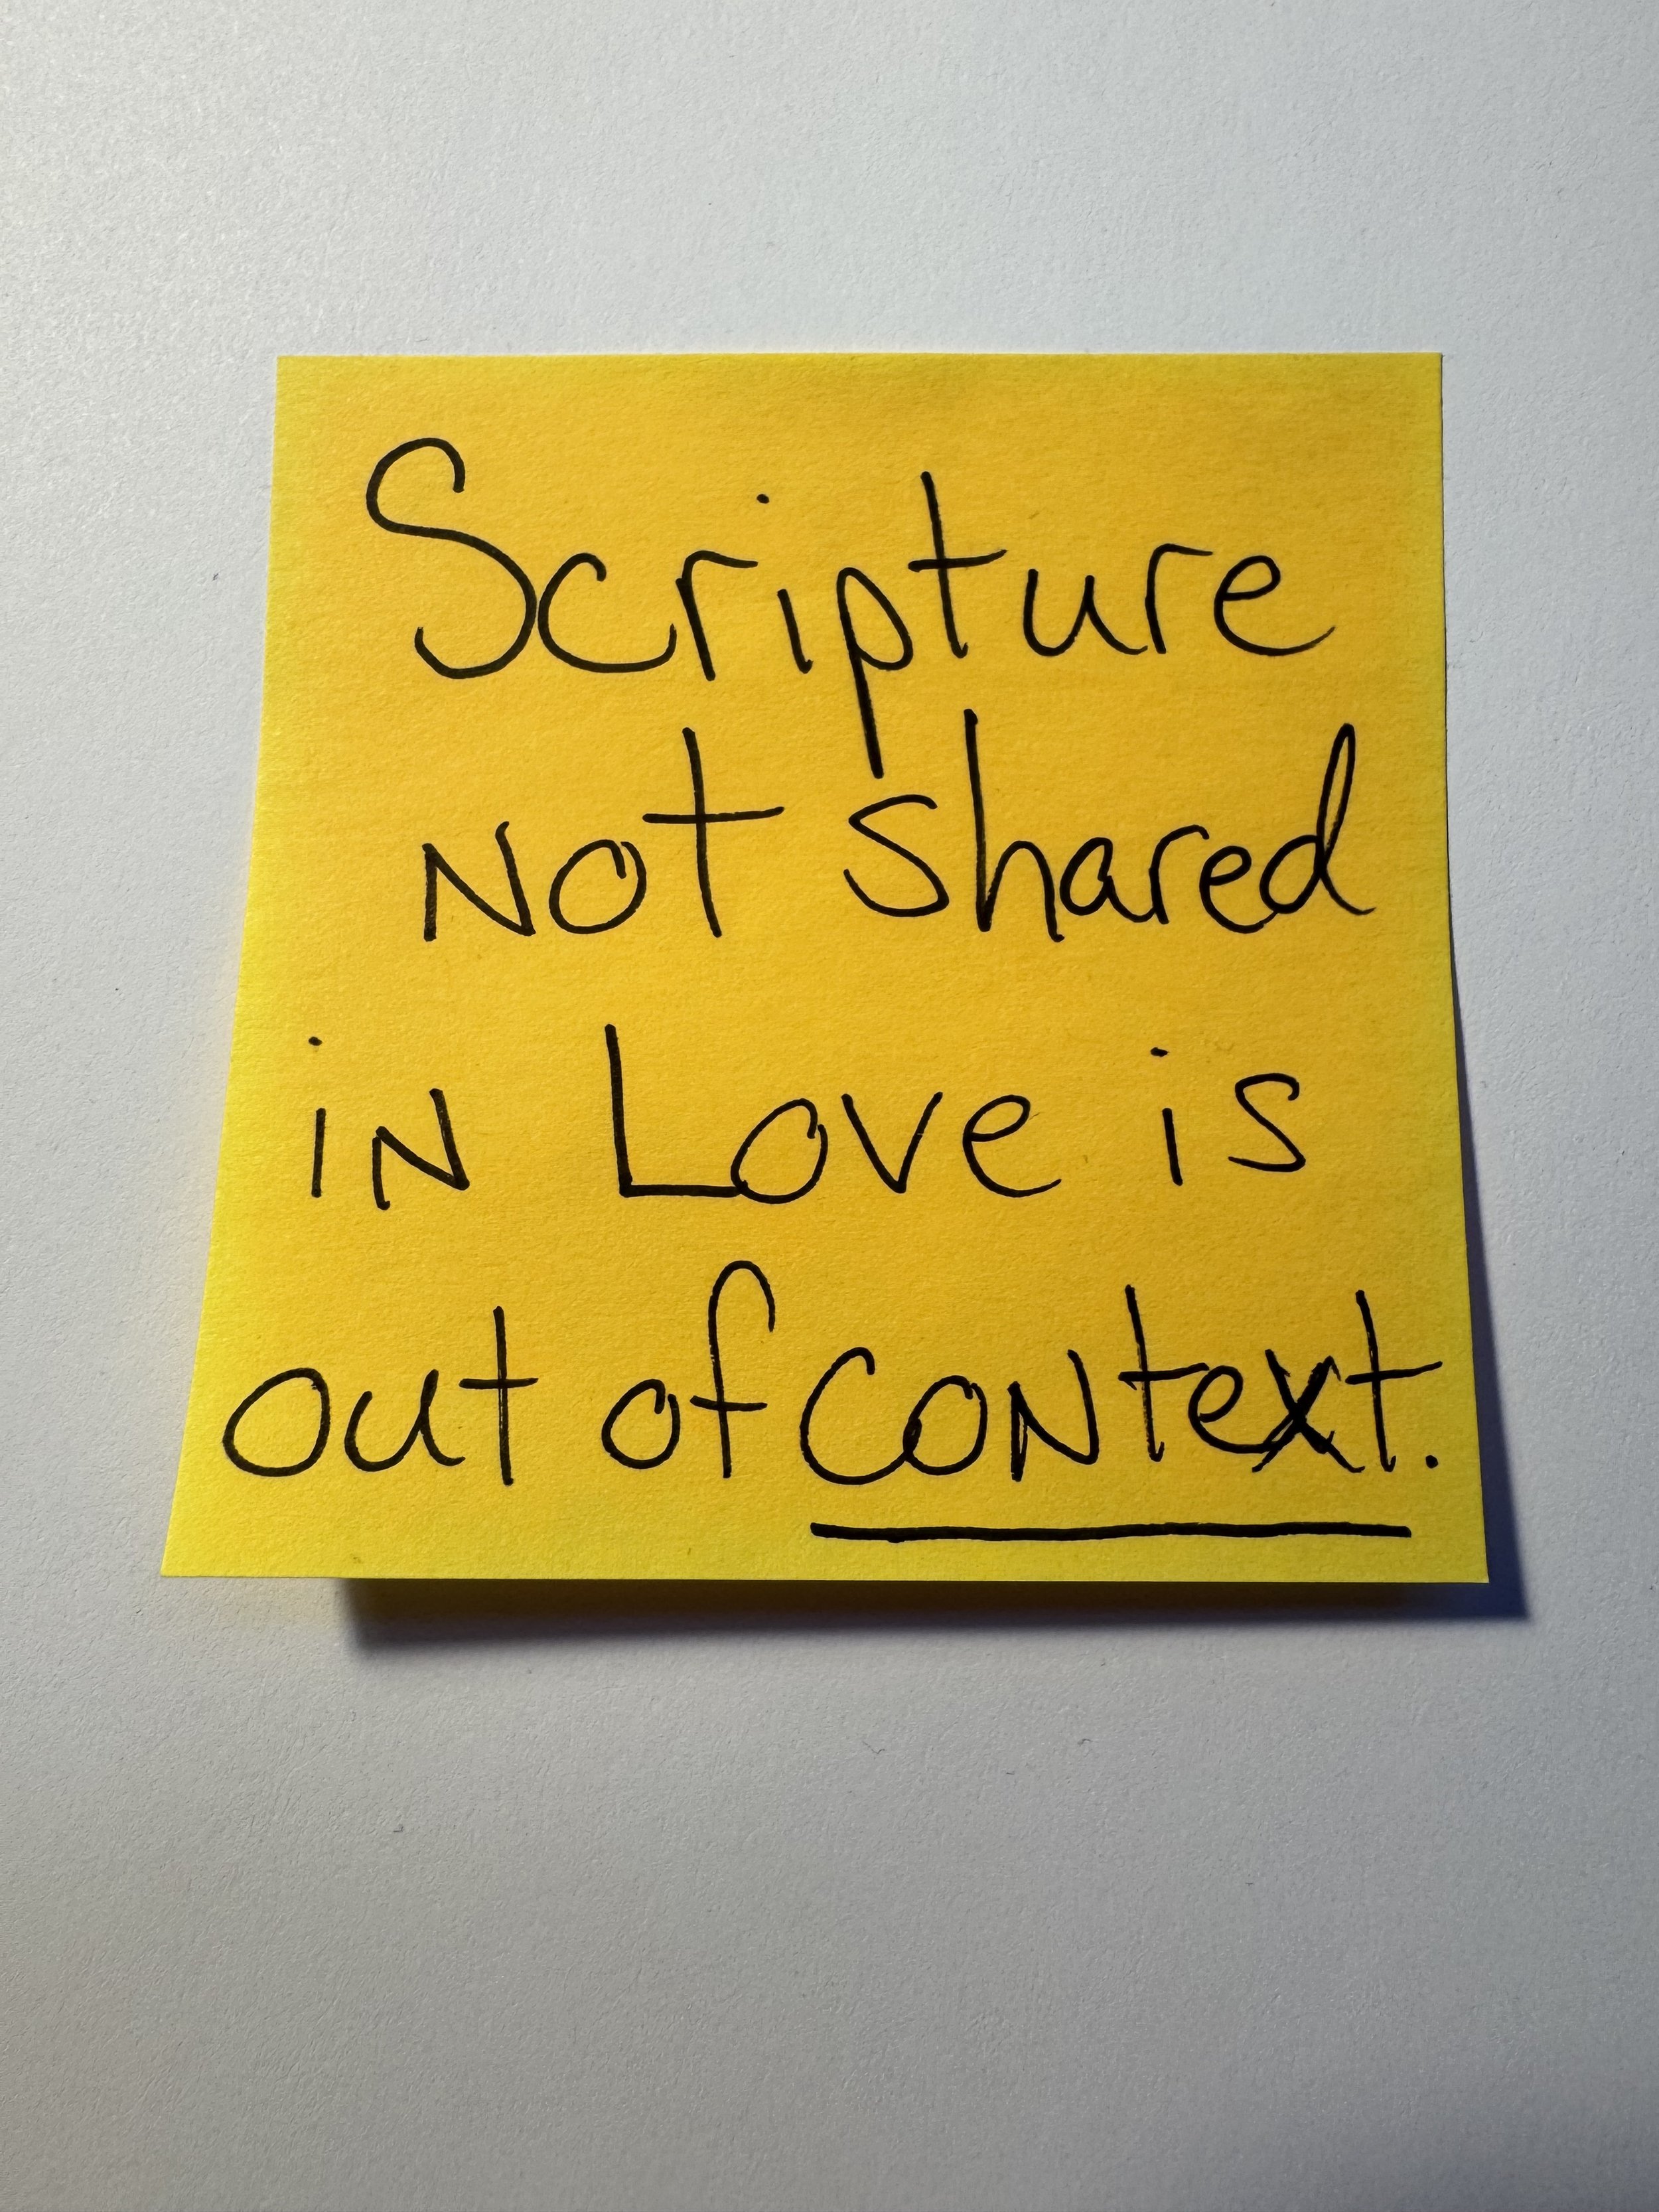 Scripture
Not shared
in Love is
out of context.